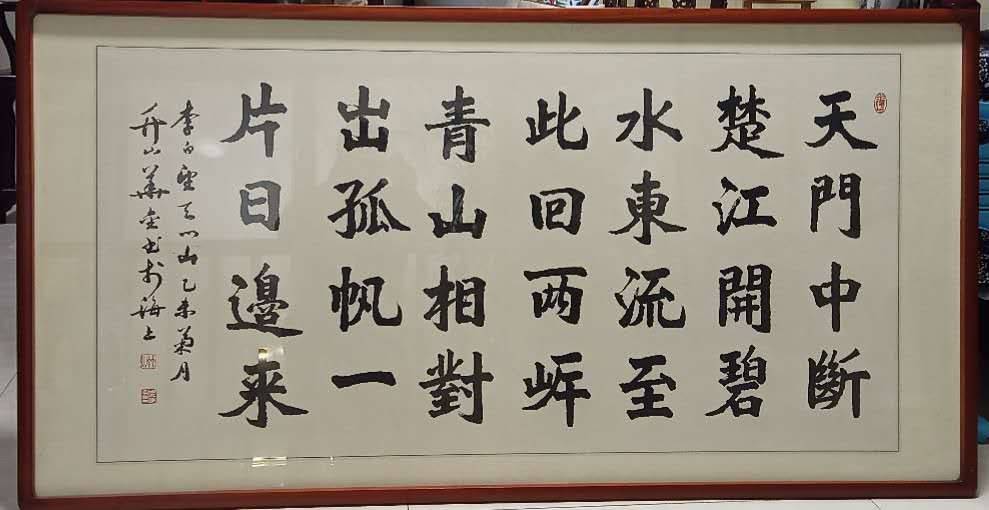 天門中斷
楚江開碧
水東流至
此回两岸
青山相對
出孤帆一
片日邊来
李白望天门山乙未菊月
山華金书於海上